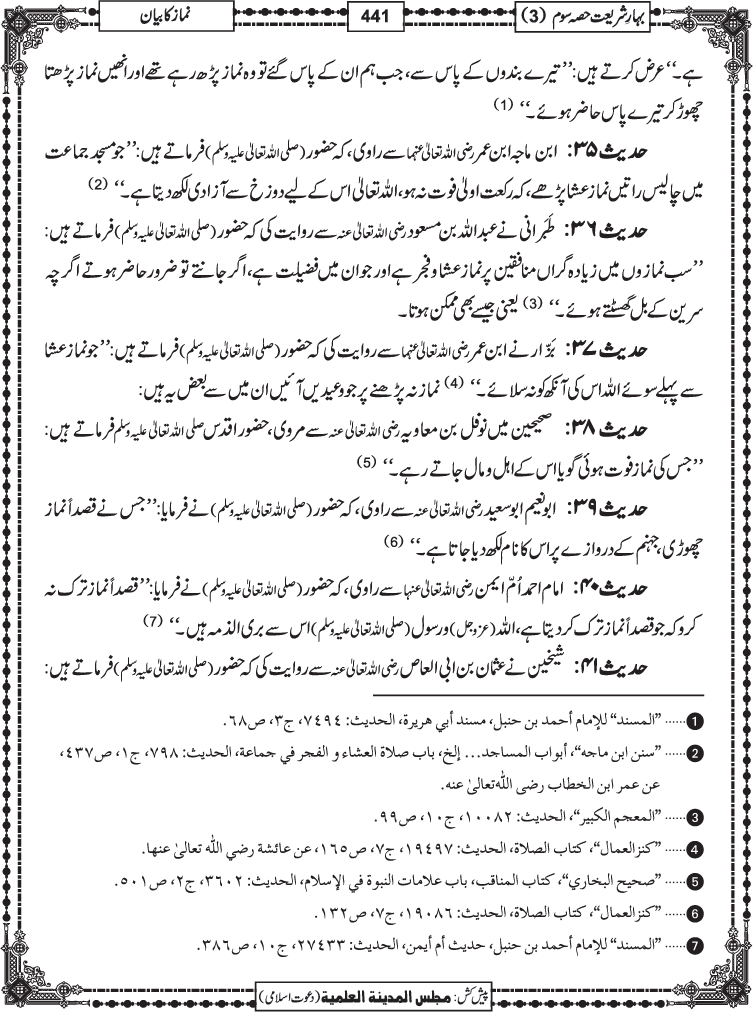 بہارِ شریعت حصہ سوم (3)
441
نماز کا بیان
ہے۔‘‘ عرض کرتے ہیں: ’’تیرے بندوں کے پاس سے، جب ہم ان کے پاس گئے تو وہ نماز پڑھ رہے تھے اور انھیں نماز پڑھتا
چھوڑ کر تیرے پاس حاضر ہوئے۔‘‘ (1)
حدیث ۳۵: ابن ماجہ ابن عمر رضی اللہ تعالیٰ عنہما سے راوی، کہ حضور (صلی اللہ تعالیٰ علیہ وسلم) فرماتے ہیں: ’’جو مسجد جماعت
میں چالیس راتیں نماز عشا پڑھے، کہ رکعت اولیٰ فوت نہ ہو، اللہ تعالیٰ اس کے لیے دوزخ سے آزادی لکھ دیتا ہے۔‘‘ (2)
حدیث ۳۶: طَبَرانی نے عبداللہ بن مسعود رضی اللہ تعالیٰ عنہ سے روایت کی کہ حضور (صلی اللہ تعالیٰ علیہ وسلم) فرماتے ہیں:
’’سب نمازوں میں زیادہ گراں منافقین پر نماز عشا و فجر ہے اور جو ان میں فضیلت ہے، اگر جانتے تو ضرور حاضر ہوتے اگرچہ
سرین کے بل گھسٹتے ہوئے۔‘‘ (3) یعنی جیسے بھی ممکن ہوتا۔
حدیث ۳۷: بزّار نے ابن عمر رضی اللہ تعالیٰ عنہما سے روایت کی کہ حضور (صلی اللہ تعالیٰ علیہ وسلم) فرماتے ہیں: ’’جو نماز عشا
سے پہلے سوئے اللہ اس کی آنکھ کو نہ سلائے۔‘‘ (4) نماز نہ پڑھنے پر جو وعیدیں آئیں ان میں سے بعض یہ ہیں:
حدیث ۳۸: صحیحین میں نوفل بن معاویہ رضی اللہ تعالیٰ عنہ سے مروی، حضور اقدس صلی اللہ تعالیٰ علیہ وسلم فرماتے ہیں:
’’جس کی نماز فوت ہوئی گویا اس کے اہل و مال جاتے رہے۔‘‘ (5)
حدیث ۳۹: ابو نعیم ابو سعید رضی اللہ تعالیٰ عنہ سے راوی، کہ حضور (صلی اللہ تعالیٰ علیہ وسلم) نے فرمایا: ’’جس نے قصداً نماز
چھوڑی، جہنم کے دروازے پر اس کا نام لکھ دیا جاتا ہے۔‘‘ (6)
حدیث ۴۰: امام احمد اُمّ ایمن رضی اللہ تعالیٰ عنہا سے راوی، کہ حضور (صلی اللہ تعالیٰ علیہ وسلم) نے فرمایا: ’’قصداً نماز ترک نہ
کرو کہ جو قصداً نماز ترک کر دیتا ہے، اللہ (عزوجل) و رسول (صلی اللہ تعالیٰ علیہ وسلم) اس سے بری الذمہ ہیں۔‘‘ (7)
حدیث ۴۱: شیخین نے عثمان بن ابی العاص رضی اللہ تعالیٰ عنہ سے روایت کی کہ حضور (صلی اللہ تعالیٰ علیہ وسلم) فرماتے ہیں:
1 ...... ”المسند“ للإمام أحمد بن حنبل، مسند أبي هريرة، الحديث: ٧٤٩٤، ج٣، ص٦٨.
2 ...... ”سنن ابن ماجه“، أبواب المساجد... إلخ، باب صلاة العشاء و الفجر في جماعة، الحديث: ٧٩٨، ج١، ص٤٣٧،
عن عمر ابن الخطاب رضى الله تعالىٰ عنه.
3 ...... ”المعجم الكبير“، الحديث: ١٠٠٨٢، ج١٠، ص٩٩.
4 ...... ”كنزالعمال“، كتاب الصلاة، الحديث: ١٩٤٩٧، ج٧، ص١٦٥، عن عائشة رضي الله تعالىٰ عنها.
5 ...... ”صحيح البخاري“، كتاب المناقب، باب علامات النبوة في الإسلام، الحديث: ٣٦٠٢، ج٢، ص٥٠١.
6 ...... ”كنزالعمال“، كتاب الصلاة، الحديث: ١٩٠٨٦، ج٧، ص١٣٢.
7 ...... ”المسند“ للإمام أحمد بن حنبل، حديث أم أيمن، الحديث: ٢٧٤٣٣، ج١٠، ص٣٨٦.
پیش کش: مجلس المدینة العلمیة (دعوت اسلامی)